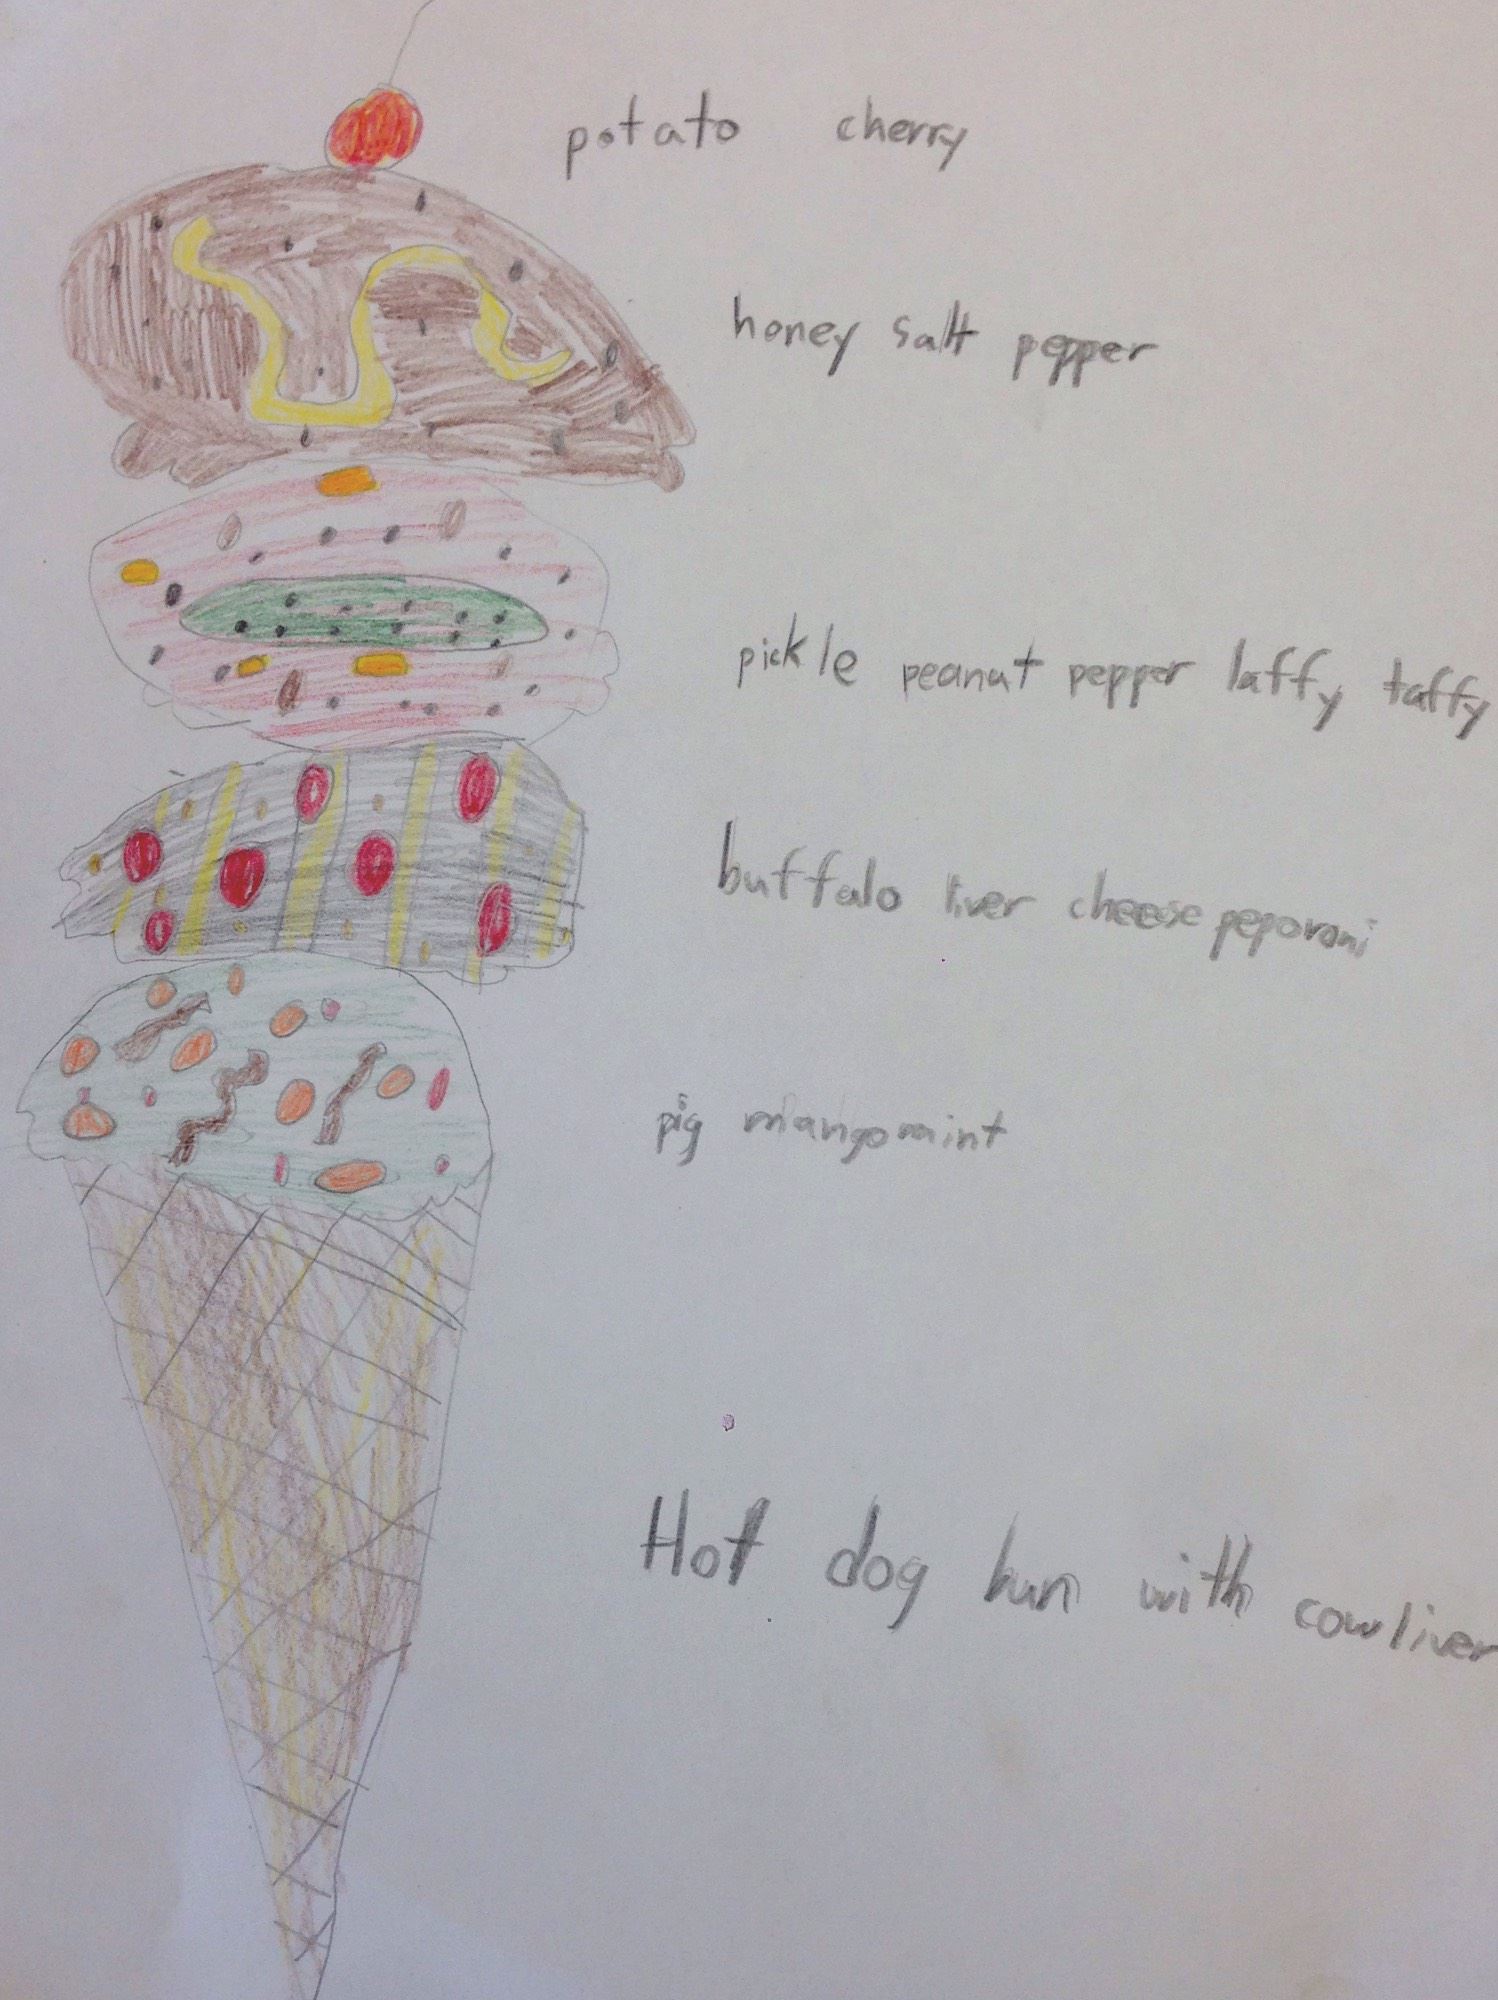 potato cherry
honey salt pepper
pickle peanut pepper laffy taffy
buffalo liver cheese peporoni
pig mangomint
Hot dog bun with cowliver